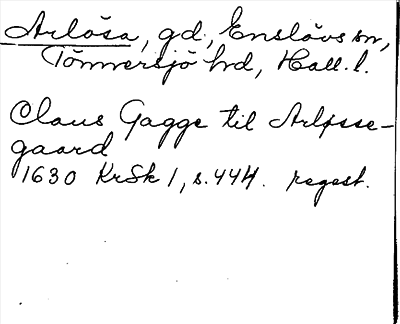 Arlösa, gd, Enslövs sn,
Tönnersjö hd, Hall. l.
Claus Gagge til Arløsse-
gaard
1630 KrSk 1, s. 444. regest.